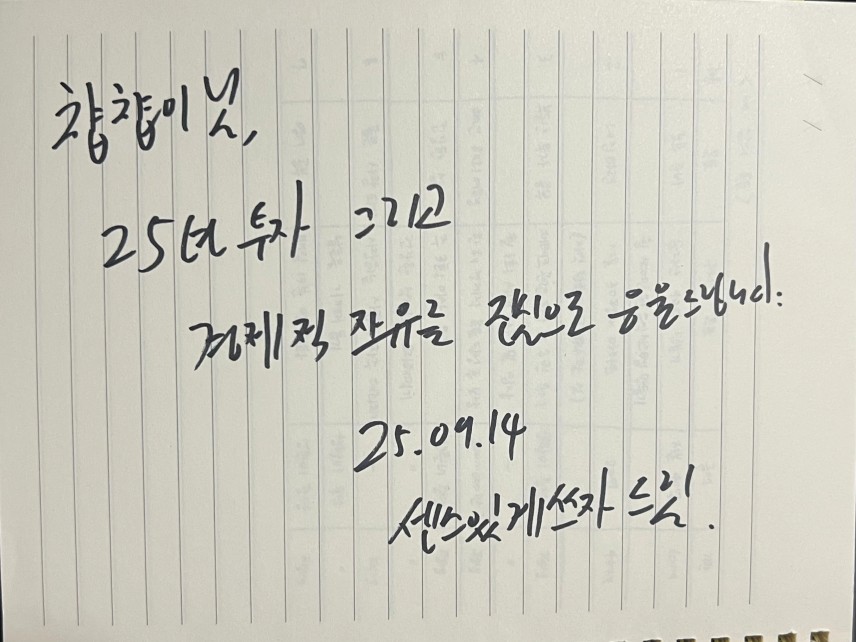 챱챱이 님,
25년 투자 그리고
경제적 자유를 진심으로 응원드립니다.
25.09.14
센스있게쓰자 드림.